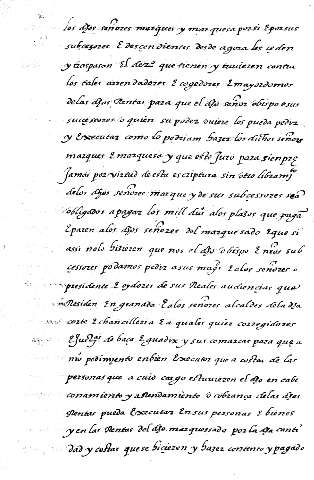 los dhos señores marques y marquesa por si E por sus
subcesores E descendientes desde agora les ceden
y traspasan El derº que tienen y tuvieren contra
los tales arrendadores E cogedores E mayordomos
de las dhas Rentas para que el dho señor obispo E sus
sucessores o quien su poder oviere los pueda pedir
y Executar como lo podrian hazer los dichos señores
marques E marquesa y que esto Juro para siempre
Jamas por virtud de esta escriptura sin otro
de los dhos señores marques y de sus subcessores sean
obligados a pagar los mill dus a los plazos que pagan
E paren a los dhos señores del marquesado E que si
assi no lo hizieren que nos el dho obispo E nros sub
cessores podamos pedir a su magt E a los señores
presidente E oydores de sus Reales audiencias que
Residen En granada E a los señores alcaldes de la dha
corte E chancilleria E a quales quier corregidores
E Justªs de baça E guadix y sus comarcas para que a
nro pedimiento Enbien Executor que a costas de las
personas que a cuio cargo estuvieren el dho en cabe
çonamiento y aRendamiento o cobrança de las dhas
Rentas pueda Executar En sus personas E bienes
y en las Rentas del dho marquesado por la dha canti
dad y costas que se hizieren y hazer contento y pagado